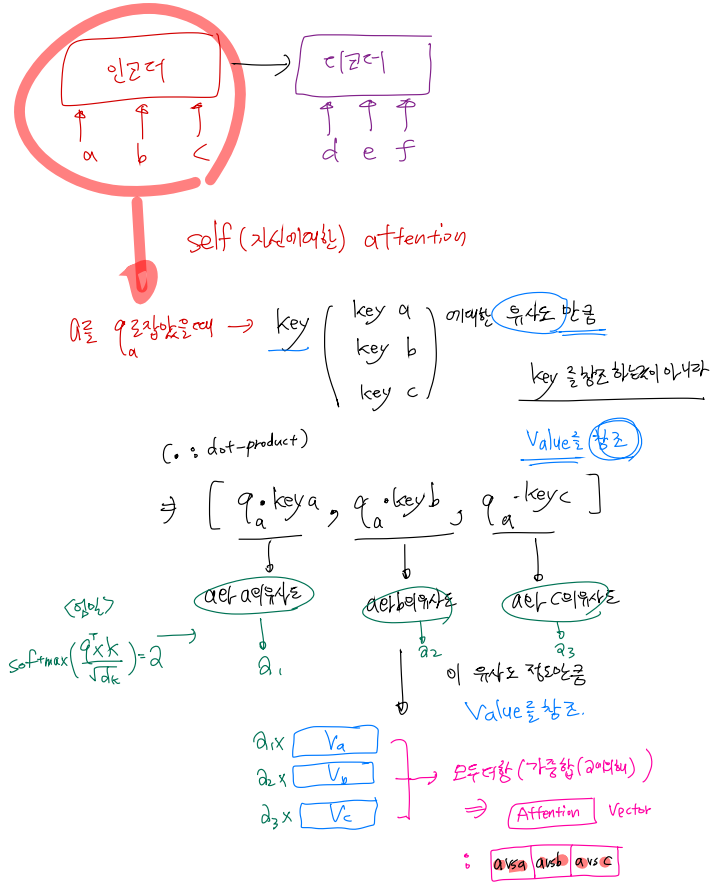 인코더 → 디코더
a b c
d e f
self (자신에대한) attention
a를 qₐ로잡았을때 → key ( key a key b key c ) 에대한 유사도 만큼
key 를 창조 하는것이 아니라
Value를 창조
(• : dot-product)
⇒ [ qₐ•key a , qₐ•key b , qₐ•key c ]
a와 a의유사도
a와b의유사도
a와 c의유사도
softmax(qᵀxk/√dk) = a →
a₁
a₂
a₃
이 유사도 정도만큼
Value를 창조.
a₁x Va
a₂x Vb
a₃x Vc
→ 모두더함 (가중합(a에의해))
⇒ Attention Vector
: a vs a a vs b a vs c